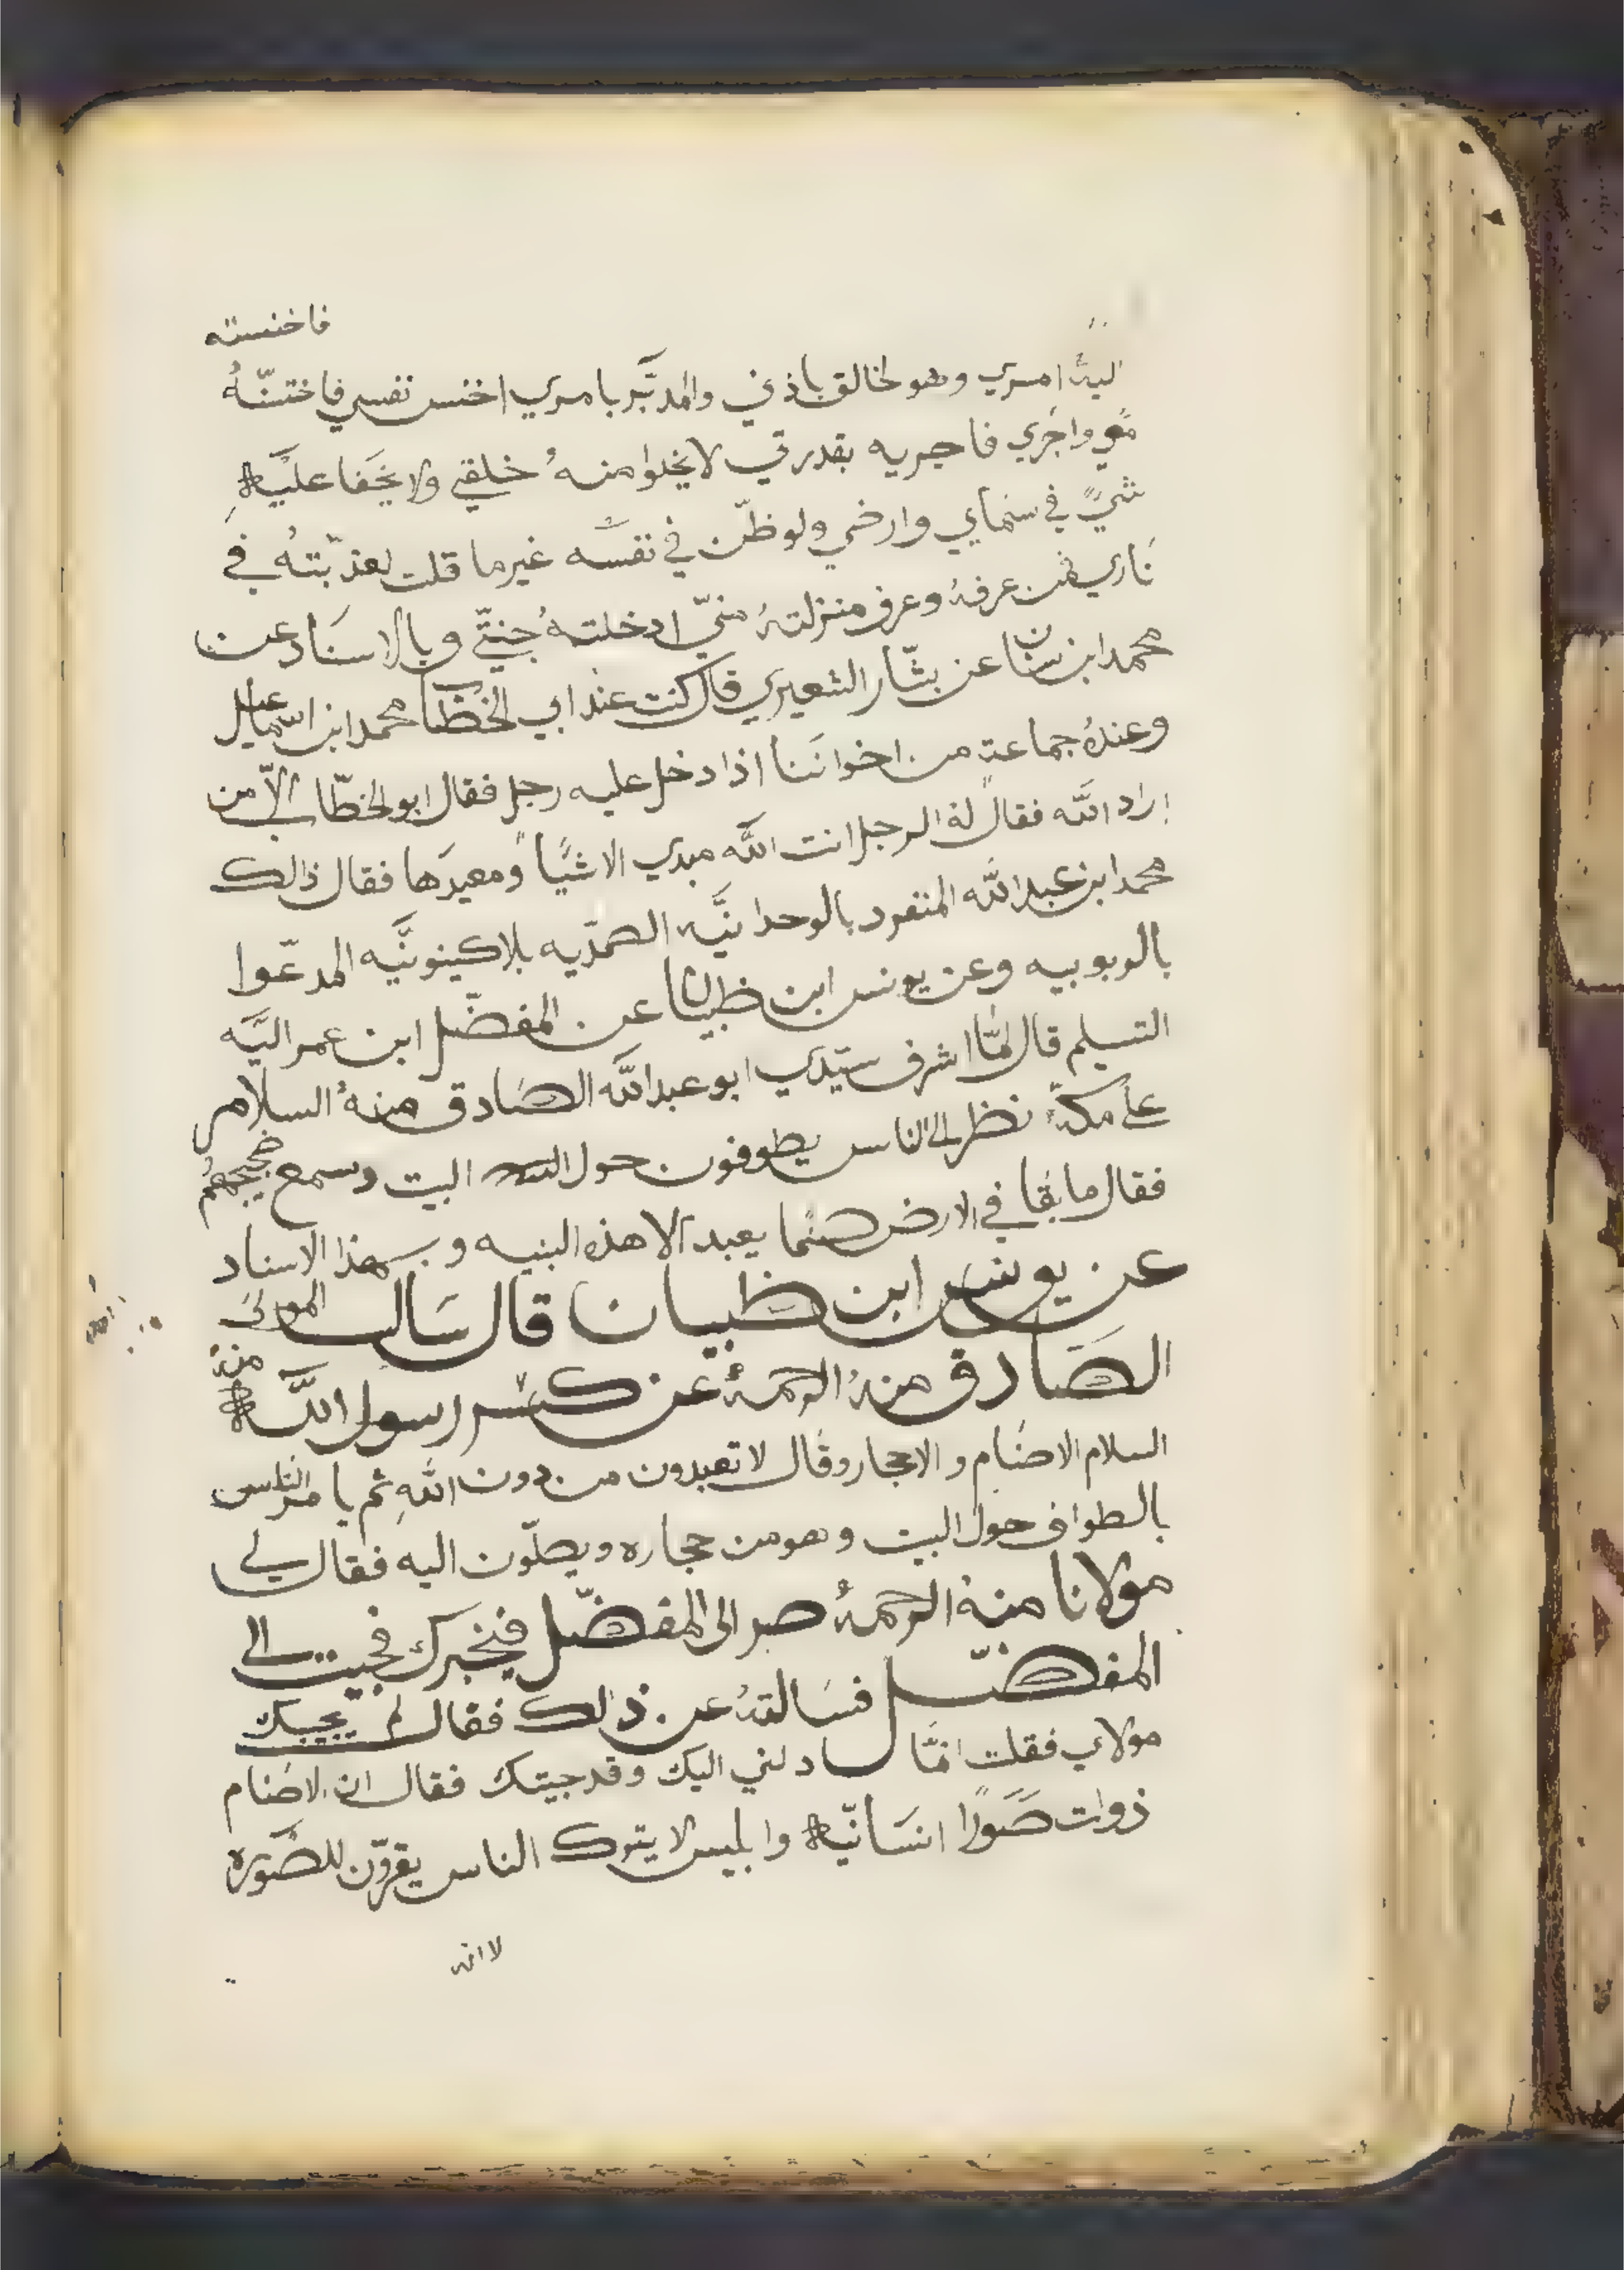 فاخنسته
اليه امري وهو لخالق باذني والمدبّر بامري اخنس نفسي فاختنّهُ
معي واجري فاجريه بقدرتي لا يخلوا منهُ خلقي ولا يخفا عليه
شيً في سماي وارضي ولو ظنّ في نفسه غير ما قلت لعذّبتهُ في
ناري فمن عرفهُ وعرف منزلتهُ منيّ ادخلتهُ جنتيّ وبالاسناد عن
محمد ابن سنان عن بشّار الشعيري قال كنت عند ابي الخطّاب محمد ابن اسماعيل
وعندهُ جماعةٍ من اخواننا اذا دخل عليه رجل فقال ابو الخطّاب الّا من
اراد الله فقال لهُ الرجل انت الله مبدي الاشيًا ومعيدها فقال ذالك
محمد ابن عبد الله المنفرد بالوحدانيَّه الصمدّيه بلا كينونيَّه المدعّوا
بالربوبيه وعن يونس ابن ظبيان عن المفضّل ابن عمر اليَه
التسليم قال لمّا اشرف سيّدي ابو عبد الله الصادق منهُ السلام
علىٰ مكةً نظر الى الناس يطوفون حول البيت وسمع ضجيجهُم
فقال ما بقا في الارض صنمًا يعبد الا هذه البنيه وبهذا الاسناد
عن يونس ابن ظبيان قال سالت المولىَ
الصَادق منهُ الرحمهُ عن كسر رسول الله منهُ
السلام الاصنام والاحجار وقال لا تعبدون من دون اللهِ ثم يامر الناس
بالطواف حول البيت وهو من حجاره ويصلّون اليه فقال لي
مولانا منهُ الرحمهُ صر الى المفضّل فيخبرك فجيت الى
المفضّل فسالتهُ عن ذالك فقال لم يجيبك
مولاي فقلت انمَّا دلني اليك وقد جيتك فقال ان الاصنام
ذوات صَورًا انسَانيّه وابليس لا يترك الناس يقرّون للصّوره
لا انه